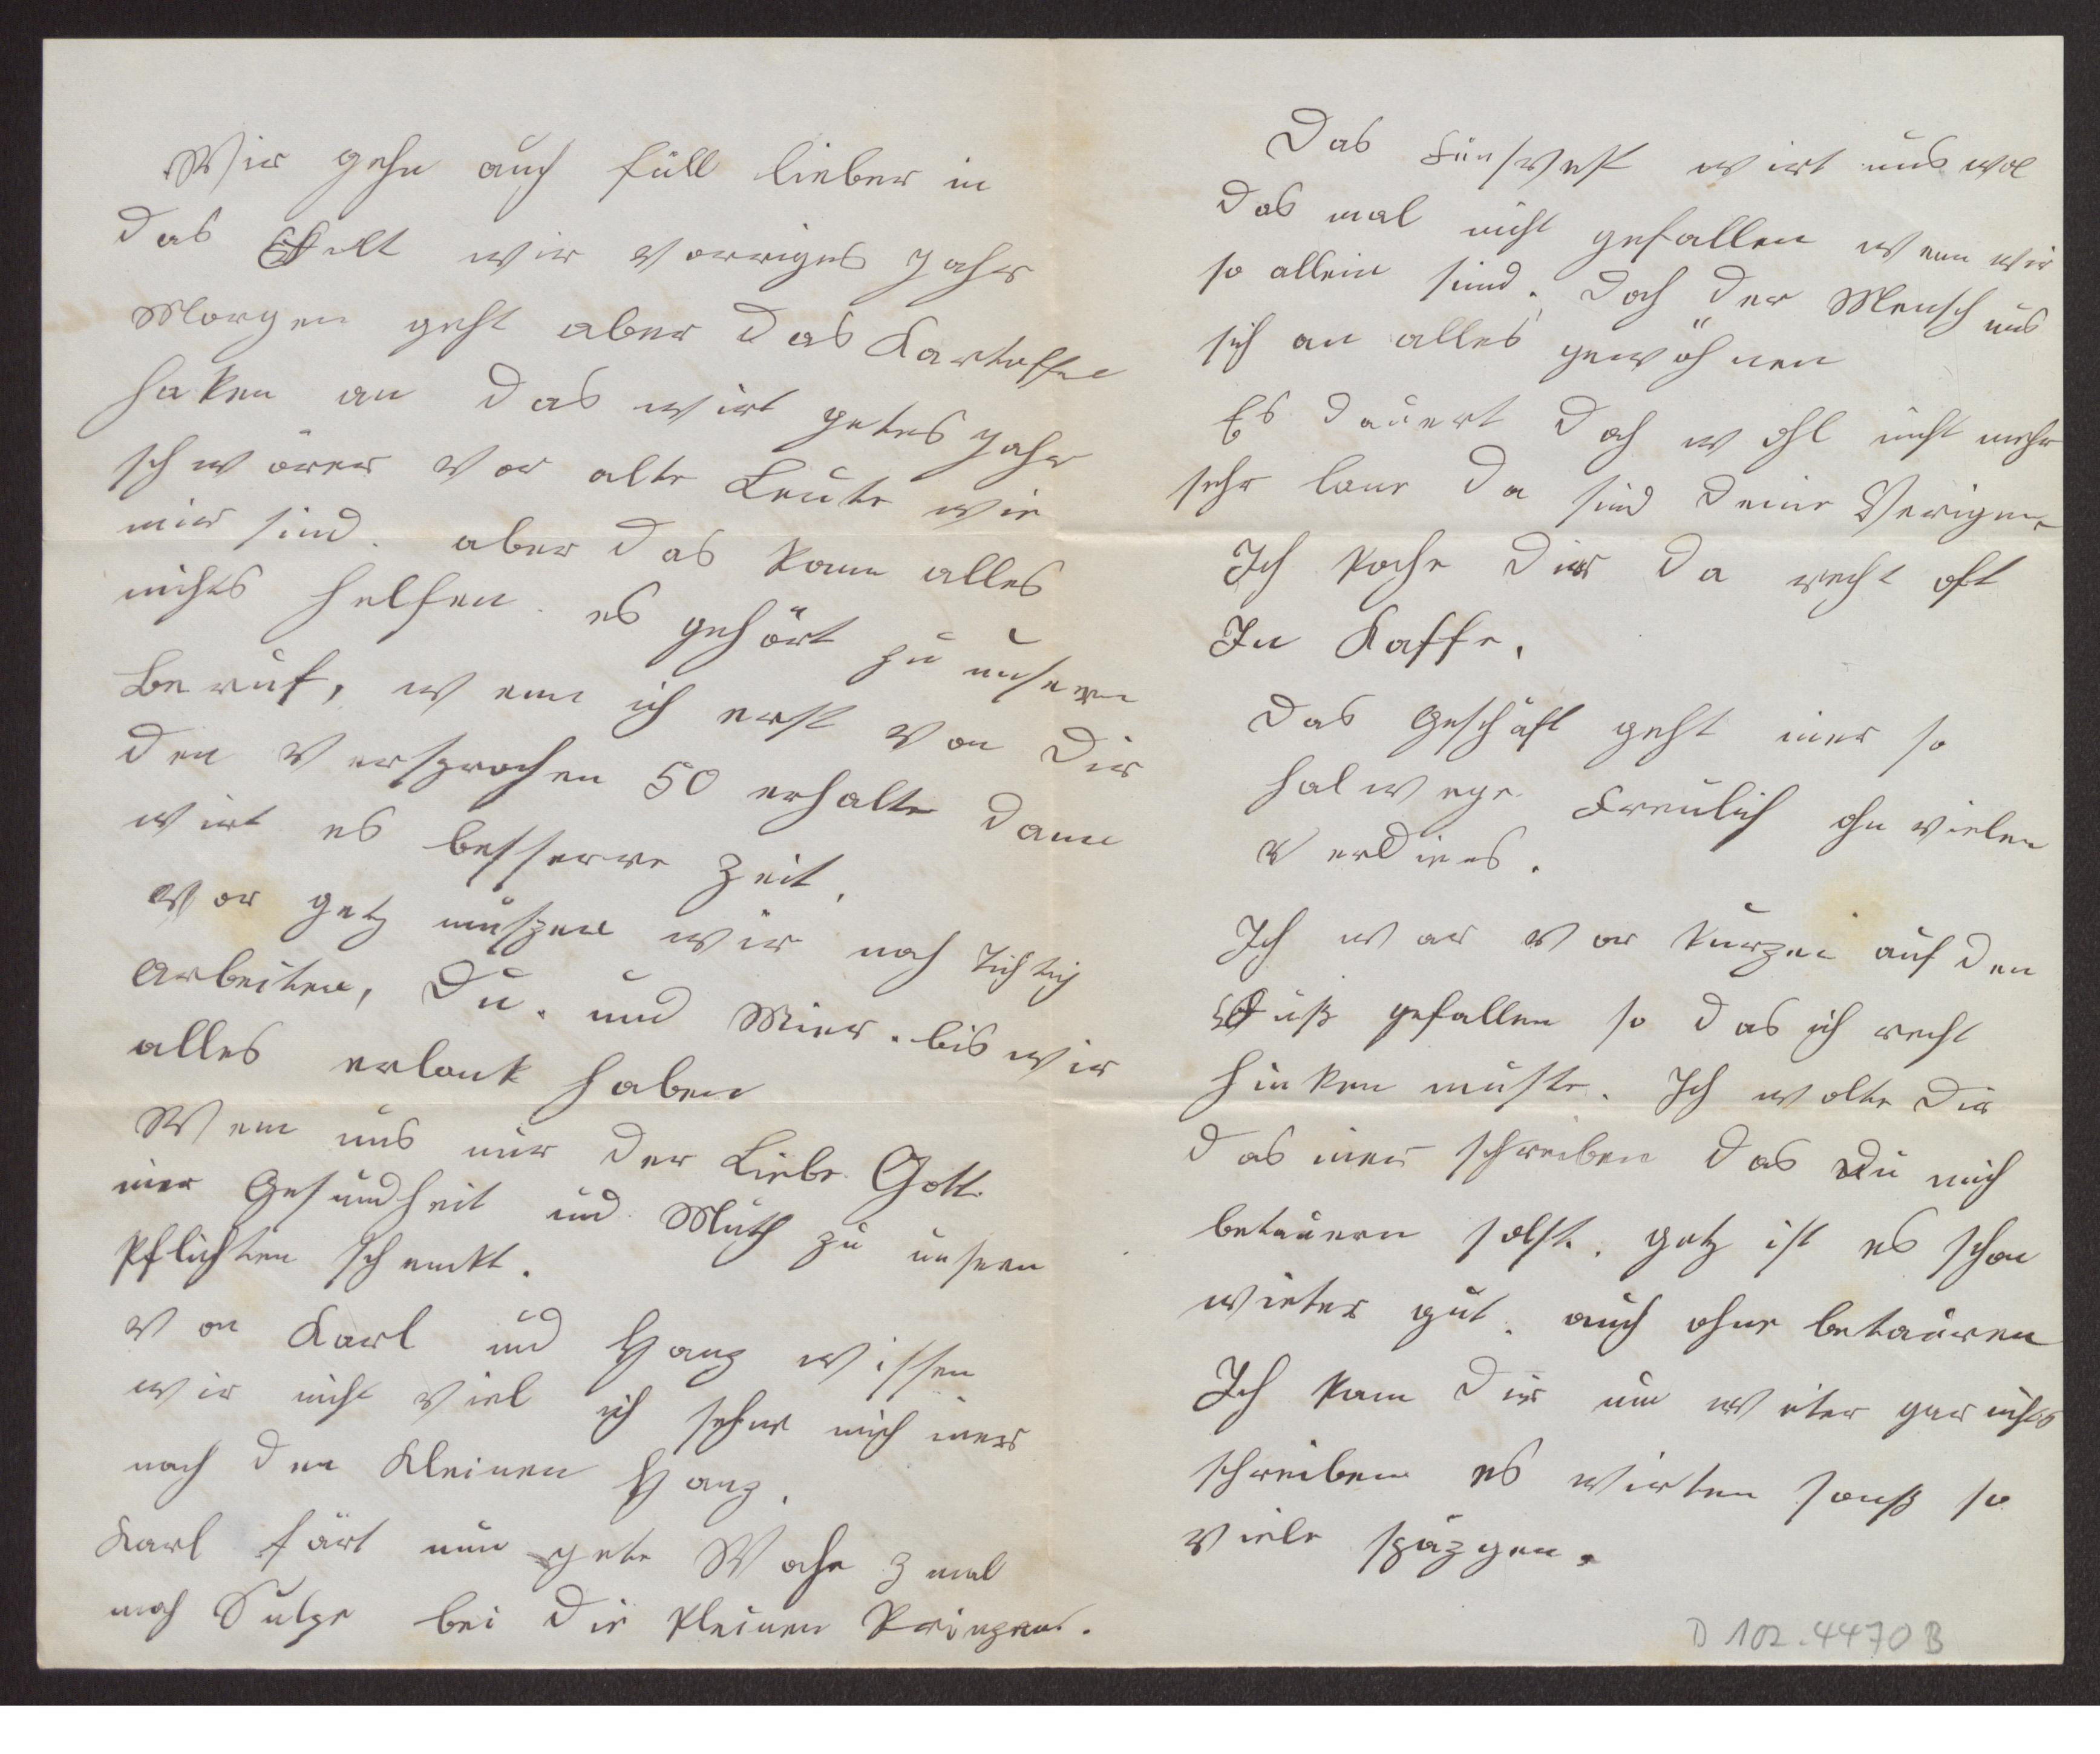 Wir gehn auch füll lieber in
das Felt wir vorriges Jahr
Morgen geht aber das Kartoffel
haken an das wirt getes Jahr
schwörer vor alte Leute wie
mir sind. aber das kann alles
nichts helfen. es gehört zu unsern
Beruf, wenn ich erst von Dir
den versprochen 50 erhalte dann
wirt es bessere Zeit.
Vor getz mußen wir noch tichtig
Arbeiten, Du. und Mier. bis wir
alles erlankt haben
Wenn uns nur der Liebe Gott
imer Gesundheit und Muth zu unsern
Pflichten schenkt.
von Karl und Hanz wissen
wir nicht viel ich sehne mich imer
nach den Kleinen Hanz.
Karl färt nun gete Woche 3 mal
nach Sulze bei die kleinen Prinzen.
Das wirt uns wol
das mal nicht gefallen wenn wir
so allein sind. doch der Mensch mus
sich an alles gewöhnen
Es dauert doch wohl nicht mehr
sehr lane da sind deine Verigen
Ich koche dir da recht oft
In Kaffe.
Das Geschäft geht imer so
halwege Freulich ohn vielen
verdienes.
Ich war vor kurzen auf den
Fuß gefallen so das ich recht
hinken muste. Ich wolte dir
das imer schreiben das Du mich
betauern solst. getz ist es schon
wieter gut. auch ohne betauren
Ich kann dir nun weiter gar nichts
schreiben es wirten sonst so
viele späzgen.
D 102.4470 B